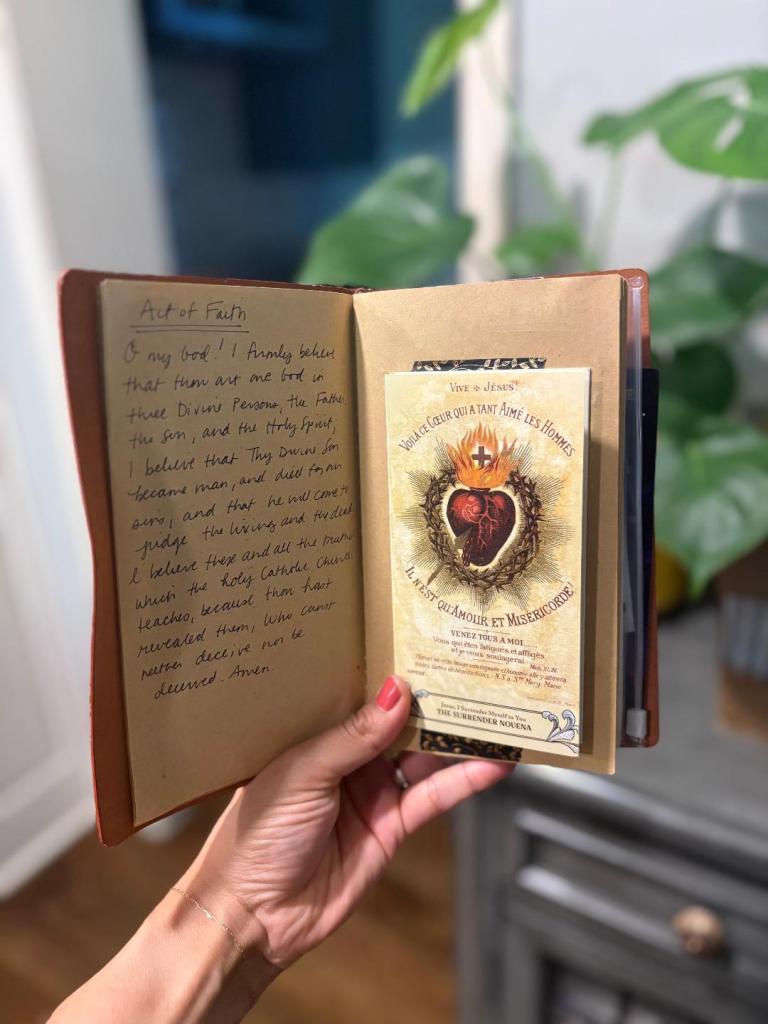 Act of Faith
O my God! I firmly believe
that thou art one God in
three Divine Persons, the Father,
the Son, and the Holy Spirit,
I believe that Thy Divine Son
became man, and died for our
sins, and that he will come to
judge the living and the dead.
I believe these and all the truths
which the holy Catholic Church
teaches, because thou hast
revealed them, Who canst
neither deceive nor be
deceived. Amen.
VIVE ✣ JÉSUS!
VOILÀ CE CŒUR QUI A TANT AIMÉ LES HOMMES
IL N'EST QU'AMOUR ET MISÉRICORDE!
VENEZ TOUS A MOI...
Vous qui êtes fatigués et affligés
et je vous soulagerai. Mat. XI.28
Jesus, I Surrender Myself to You
THE SURRENDER NOVENA